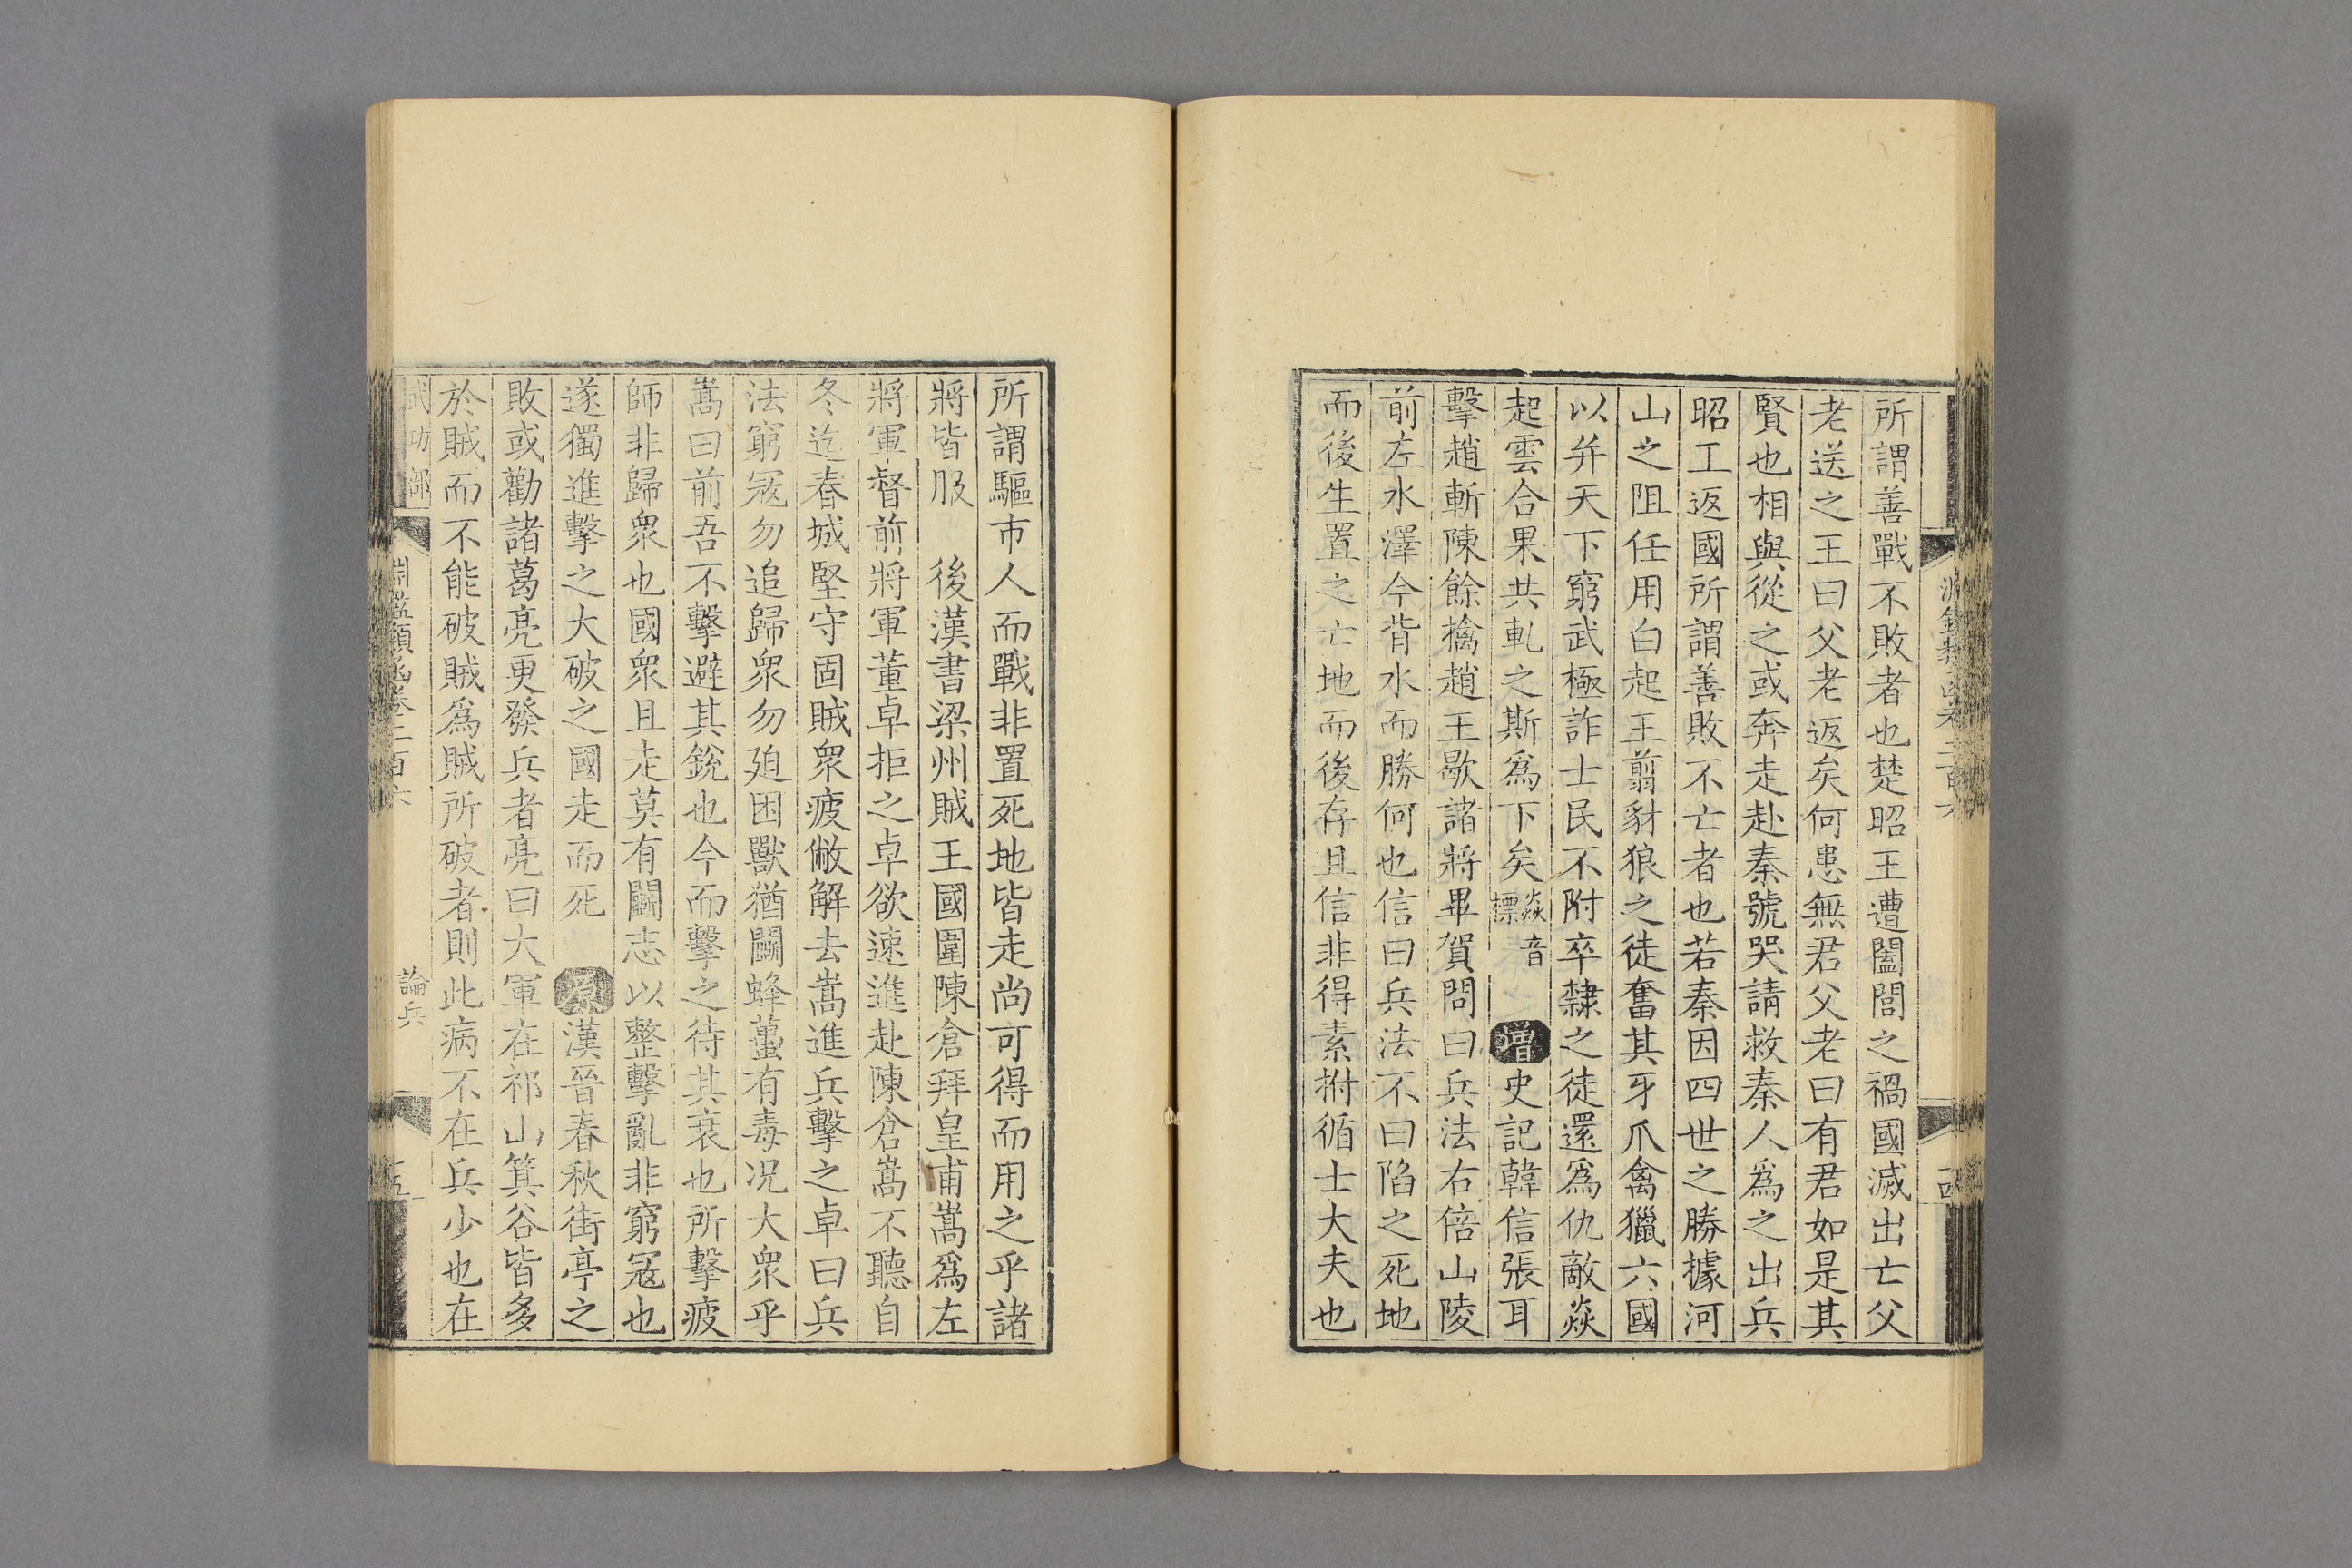 所謂善戰不敗者也楚昭王遭闔閭之禍國滅出亡父
老送之王曰父老返矣何患無君父老曰有君如是其
賢也相與從之或奔走赴秦號哭請救秦人爲之出兵
昭王返國所謂善敗不亡者也若秦因四世之勝據河
山之阻任用白起王翦豺狼之徒奮其牙爪禽獵六國
以并天下窮武極詐士民不附卒隸之徒還爲仇敵焱
起雲合果共軋之斯爲下矣焱音標 增史記韓信張耳
擊趙斬陳餘擒趙王歇諸將畢賀問曰兵法右倍山陵
前左水澤今背水而勝何也信曰兵法不曰陷之死地
而後生置之亡地而後存且信非得素拊循士大夫也
所謂驅市人而戰非置死地皆走尚可得而用之乎諸
將皆服 後漢書梁州賊王國圍陳倉拜皇甫嵩爲左
將軍督前將軍董卓拒之卓欲速進赴陳倉嵩不聽自
冬迄春城堅守固賊衆疲敝解去嵩進兵擊之卓曰兵
法窮冦勿追歸衆勿廹困獸猶鬭蜂蠆有毒况大衆乎
嵩曰前吾不擊避其銳也今而擊之待其衰也所擊疲
師非歸衆也國衆且走莫有鬭志以整擊亂非窮冦也
遂獨進擊之大破之國走而死 原漢晉春秋街亭之
敗或勸諸葛亮更發兵者亮曰大軍在祁山箕谷皆多
於賊而不能破賊爲賊所破者則此病不在兵少也在
武功部 淵鑑類函卷二百六 論兵 十五